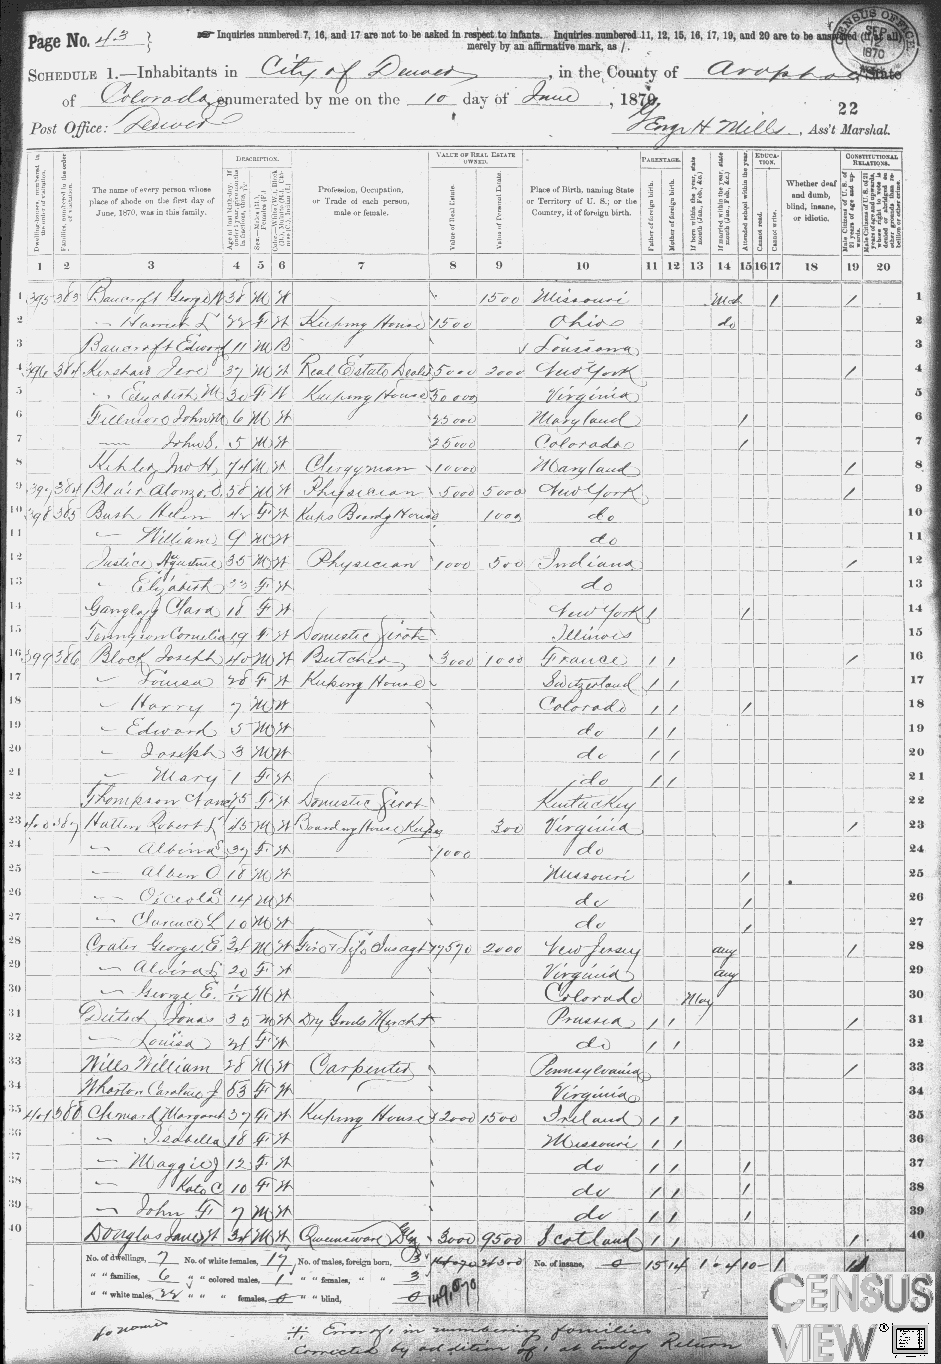 Page No. 43
Inquiries numbered 7, 16, and 17 are not to be asked in respect to infants. Inquiries numbered 11, 12, 15, 16, 17, 19, and 20 are to be answered (if at all) merely by an affirmative mark, as /.
CENSUS OFFICE SEP 12 1870
SCHEDULE 1.—Inhabitants in City of Denver, in the County of Arapahoe, State
of Colorado, enumerated by me on the 10 day of June, 1870.
22
Post Office: Denver
George H Mills, Ass't Marshal.
DESCRIPTION. VALUE OF REAL ESTATE OWNED. PARENTAGE. EDUCATION. CONSTITUTIONAL RELATIONS.
Dwelling-houses, numbered in the order of visitation.
Families, numbered in the order of visitation.
The name of every person whose place of abode on the first day of June, 1870, was in this family.
Profession, Occupation, or Trade of each person, male or female.
Value of Real Estate.
Value of Personal Estate.
Place of Birth, naming State or Territory of U. S.; or the Country, if of foreign birth.
Father of foreign birth.
Mother of foreign birth.
If born within the year, state month (Jan., Feb., &c.)
If married within the year, state month (Jan., Feb., &c.)
Attended school within the year.
Cannot read.
Cannot write.
Whether deaf and dumb, blind, insane, or idiotic.
1 2 3 4 5 6 7 8 9 10 11 12 13 14 15 16 17 18 19 20
1 395 383 Bancroft George W 38 M W 1500 Missouri Mch / / 1
2 " Harriet L 22 F W Keeping House 1500 Ohio do 2
3 Bancroft Edward 11 M B Louisiana 3
4 396 384 Kershaw Jere 37 M W Real Estate Dealer 5000 2000 New York / 4
5 " Elizabeth M 30 F W Keeping House 50000 Virginia 5
6 Fillmore John M 6 M W 25000 Maryland / 6
7 — John S. 5 M W 25000 Colorado / 7
8 Kehler Jno H, 74 M W Clergyman 10000 Maryland / 8
9 397 384 Blair Alonzo O. 58 M W Physician 5000 5000 New York / 9
10 398 385 Bush Helen 42 F W Keeps Boardg House 1000 do 10
11 — William 9 M W do 11
12 Justice Agustine 35 M W Physician 1000 500 Indiana / 12
13 " Elizabeth 33 F W do 13
14 Clara 18 F W New York / / 14
15 Tennyson Cornelia 19 F W Domestic Servt Illinois 15
16 399 386 Block Joseph 40 M W Butcher 3000 1000 France / / / 16
17 " Louisa 28 F W Keeping House Switzerland / / 17
18 " Harry 7 M W Colorado / / / 18
19 " Edward 5 M W do / / 19
20 " Joseph 3 M W do / / 20
21 " Mary 1 F W do / / 21
22 Thompson Nancy 25 F W Domestic Servt Kentucky 22
23 400 387 Hatten Robert L 45 M W Boarding House Keeper 300 Virginia / 23
24 " Albina S 37 F W 1000 do 24
25 " Alben O 18 M W Missouri / 25
26 " Osceola 14 M W do / 26
27 " Clarence L 10 M W do / 27
28 Crater George E. 34 M W Fire & Life Ins agt 17570 2000 New Jersey aug / 28
29 — Alvira L 20 F W Virginia aug 29
30 — George E. 1/12 M W Colorado May 30
31 Deitsch Jonas 33 M W Dry Goods Mercht Prussia / / / 31
32 — Louisa 21 F W do / / 32
33 Wills William 28 M W Carpenter Pennsylvania / 33
34 Wharton Caroline J 53 F W Virginia 34
35 401 388 Margaret 37 F W Keeping House 2000 1500 Ireland / / 35
36 — Isabella 18 F W Missouri / / 36
37 — Maggie J 12 F W do / / / 37
38 " Kate C 10 F W do / / / 38
39 — John F 7 M W do / / / 39
40 Douglas James W 34 M W Queensware 3000 9500 Scotland / / / 40
No. of dwellings, 7 No. of white females, 17 No. of males, foreign born, 3 24300 No. of insane, 0 15 14 1 0 4 10 - 1
" " families, 6 " " colored males, 1 " " females, " " 3
" " white males, 22 " " " females, 0 " " blind, 0 149,070
Error of 1 in numbering families
corrected by addition of 1 at end of Return
CENSUS
VIEW®